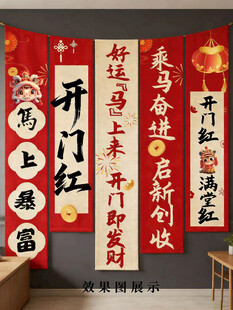 馬上暴富
开门红
好运『马』上来
开门即发财
乘马奋进
启新创收
开门红
满堂红
效果图展示